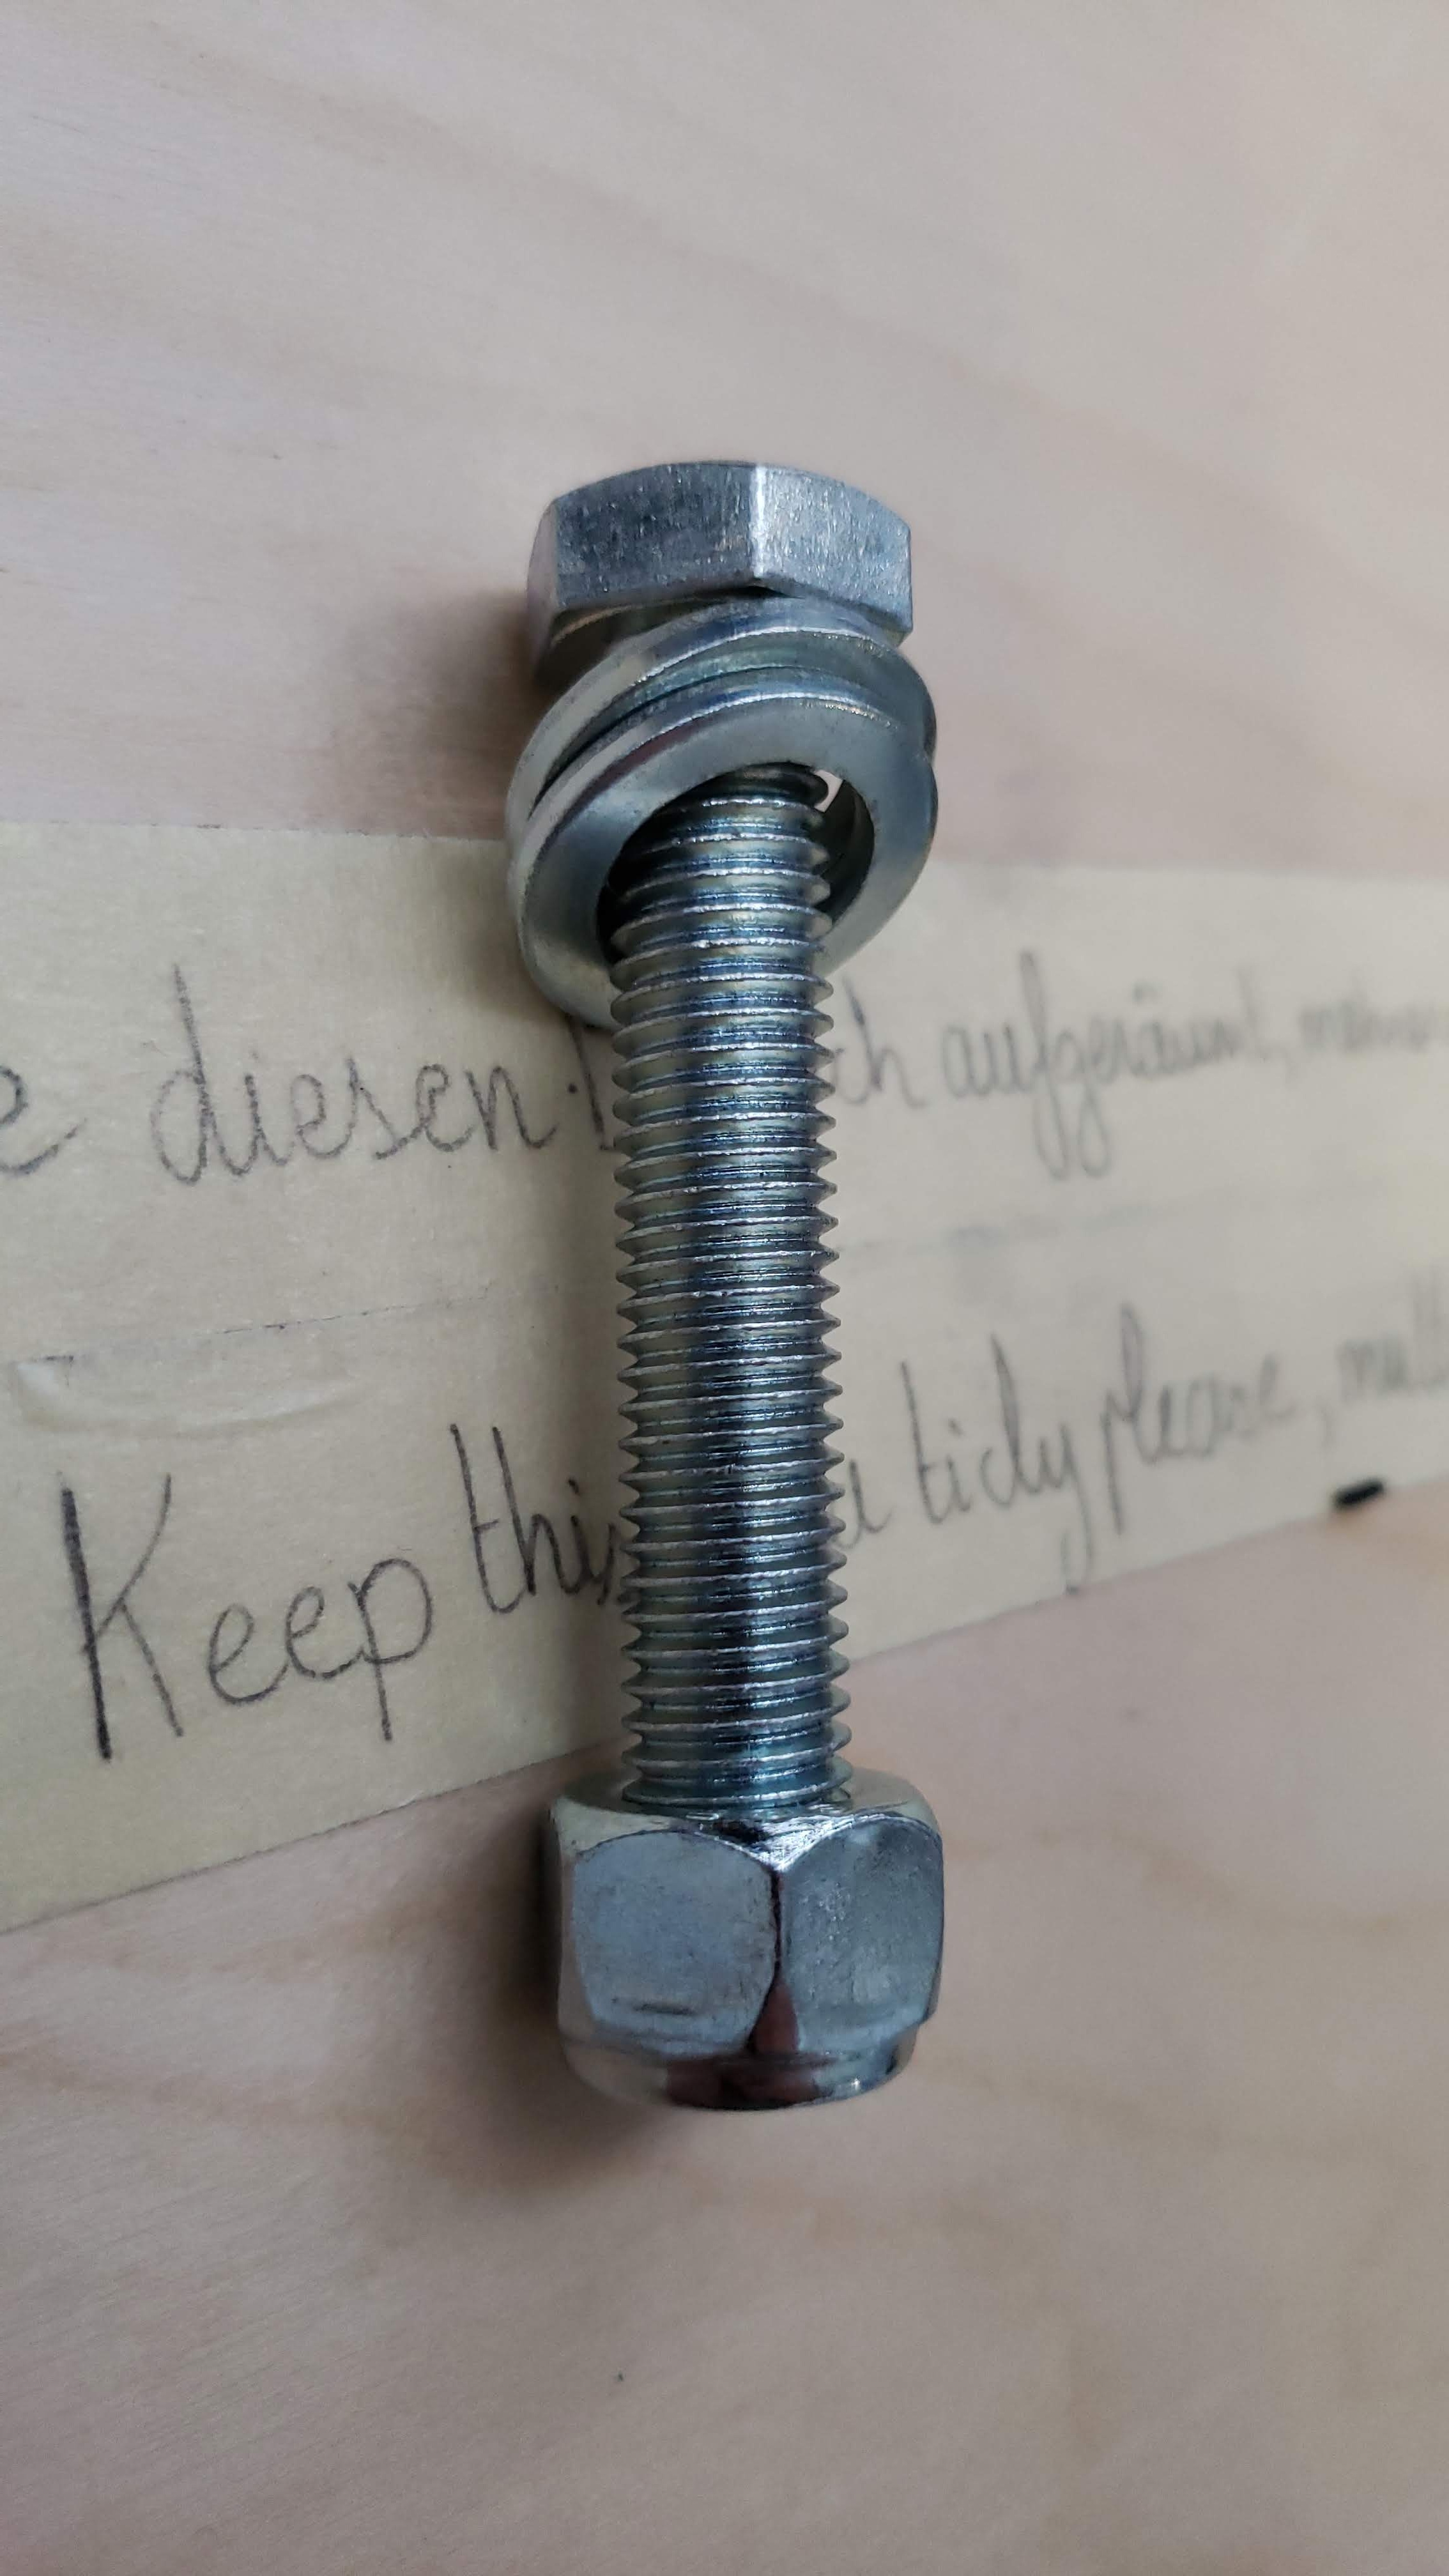 e diesen ch aufgeräumt,
Keep this a tidy please,